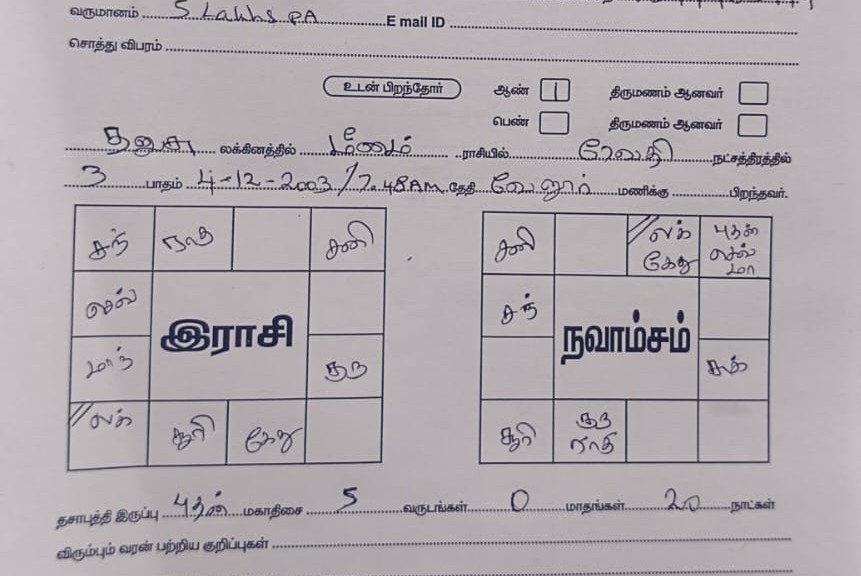 வருமானம் 5 Lakhs PA E mail ID
சொத்து விபரம்
உடன் பிறந்தோர் ஆண் 1 திருமணம் ஆனவர்
பெண் திருமணம் ஆனவர்
தனுசு லக்கினத்தில் மீனம் ராசியில் ரேவதி நட்சத்திரத்தில்
3 பாதம் 4-12-2003 / 7.48AM தேதி வேலூர் மணிக்கு பிறந்தவர்.
சந் ராகு சனி
செவ்
இராசி
மாந் குரு
லக் சூரி கேது
சனி லக் கேது புதன் செவ் மா
சந்
நவாம்சம்
சுக்
சூரி குரு ராகு
தசாபுத்தி இருப்பு புதன் மகாதிசை 5 வருடங்கள் 0 மாதங்கள் 20 நாட்கள்
விரும்பும் வரன் பற்றிய குறிப்புகள்